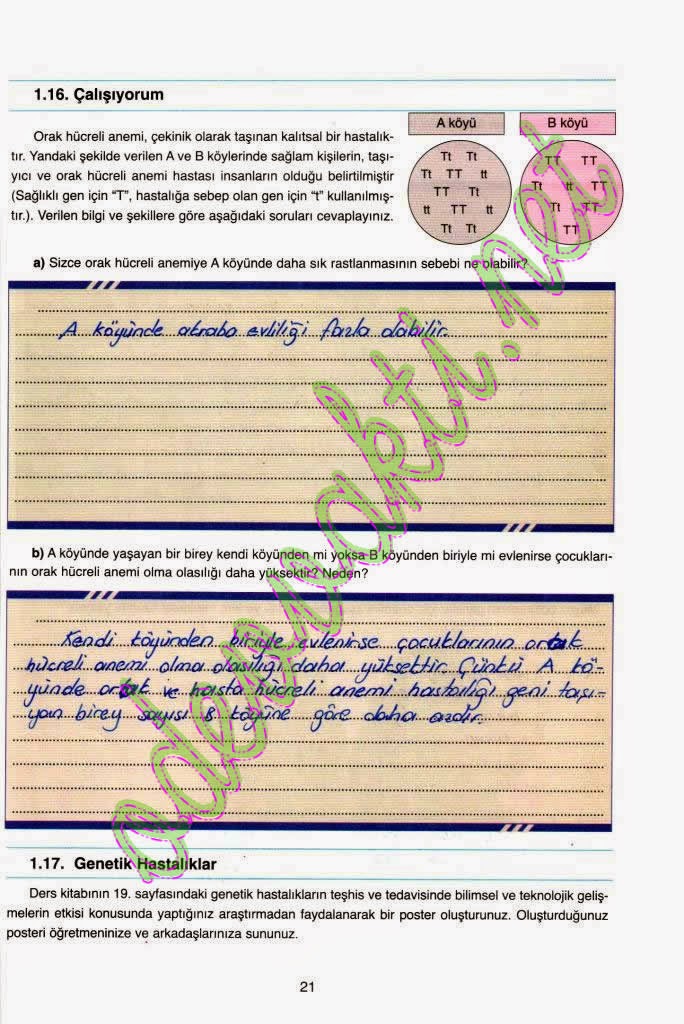 1.16. Çalışıyorum
A köyü
B köyü
Orak hücreli anemi, çekinik olarak taşınan kalıtsal bir hastalık-
tır. Yandaki şekilde verilen A ve B köylerinde sağlam kişilerin, taşı-
yıcı ve orak hücreli anemi hastası insanların olduğu belirtilmiştir
(Sağlıklı gen için “T”, hastalığa sebep olan gen için “t” kullanılmış-
tır.). Verilen bilgi ve şekillere göre aşağıdaki soruları cevaplayınız.
Tt Tt
Tt TT tt
TT Tt
tt TT tt
Tt Tt
TT TT
Tt tt TT
Tt TT
TT
a) Sizce orak hücreli anemiye A köyünde daha sık rastlanmasının sebebi ne olabilir?
A köyünde akraba evliliği fazla olabilir.
b) A köyünde yaşayan bir birey kendi köyünden mi yoksa B köyünden biriyle mi evlenirse çocukları-
nın orak hücreli anemi olma olasılığı daha yüksektir? Neden?
Kendi köyünden biriyle evlenirse çocuklarının orak
hücreli anemi olma olasılığı daha yüksektir. Çünkü A kö-
yünde orak ve hasta hücreli anemi hastalığı geni taşı-
yan birey sayısı B köyüne göre daha azdır.
1.17. Genetik Hastalıklar
Ders kitabının 19. sayfasındaki genetik hastalıkların teşhis ve tedavisinde bilimsel ve teknolojik geliş-
melerin etkisi konusunda yaptığınız araştırmadan faydalanarak bir poster oluşturunuz. Oluşturduğunuz
posteri öğretmeninize ve arkadaşlarınıza sununuz.
21